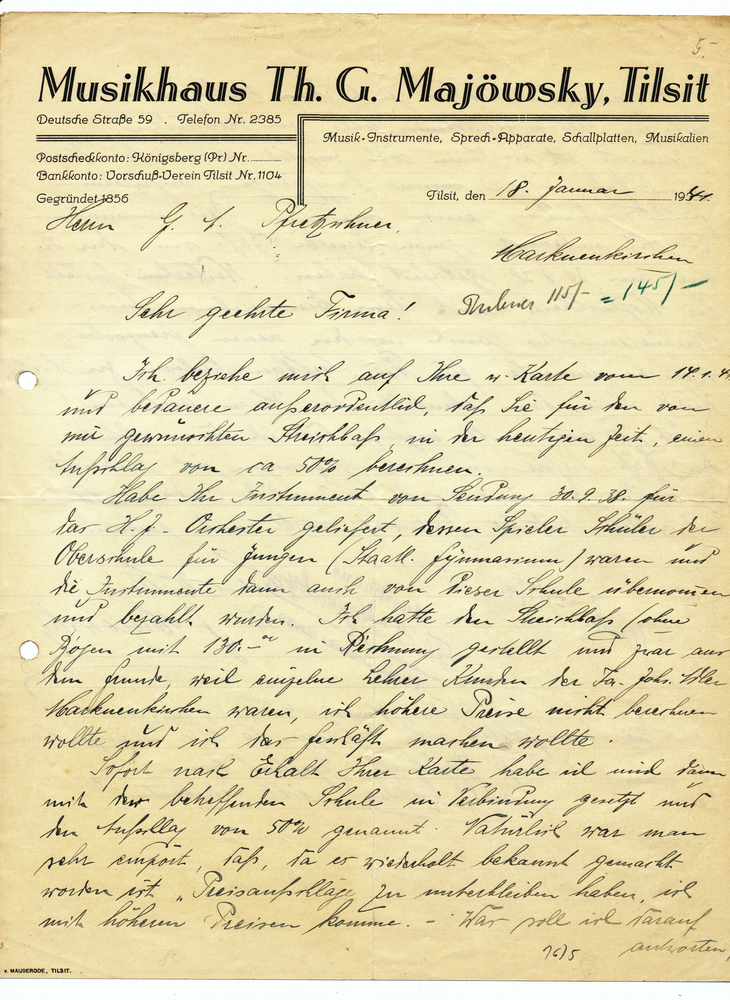 5.-
Musikhaus Th. G. Majöwsky, Tilsit
Deutsche Straße 59 . Telefon Nr. 2385
Musik-Instrumente, Sprech-Apparate, Schallplatten, Musikalien
Postscheckkonto: Königsberg (Pr) Nr.
Bankkonto: Vorschuß-Verein Tilsit Nr. 1104
Gegründet 1856
Tilsit, den 18. Januar 1941.
Herrn G. A. Pfretzschner,
Markneukirchen
115/- = 145/-
Sehr geehrte Firma!
Ich beziehe mich auf Ihre w. Karte vom 14.1.41
und bedauere außerordentlich, daß Sie für den von
mir gewünschten Streichbaß, in der heutigen Zeit, einen
Aufschlag von ca 50% berechnen.
Habe Ihr Instrument von Sendung 30.9.38 für
das H.J-Orchester geliefert, dessen Spieler Schüler der
Oberschule für Jungen (Staatl. Gymnasium) waren und
die Instrumente dann auch von dieser Schule übernommen
und bezahlt wurden. Ich hatte den Streichbaß (ohne
Bogen mit 130.- in Rechnung gestellt und zwar aus
dem Grunde, weil einzelne Lehrer Kunden der Fa. Johs. Adler
Markneukirchen waren, ich höhere Preise nicht berechnen
wollte und ich das Geschäft machen wollte.
Sofort nach Erhalt Ihrer Karte habe ich mich dann
mit der betreffenden Schule in Verbindung gesetzt und
den Aufschlag von 50% genannt. Natürlich war man
sehr empört, daß, da es wiederholt bekannt gemacht
worden ist "Preisaufschläge zu unterbleiben haben, ich
mit höheren Preisen komme. - Was soll ich darauf
antworten,
v. MAUDERODE, TILSIT.